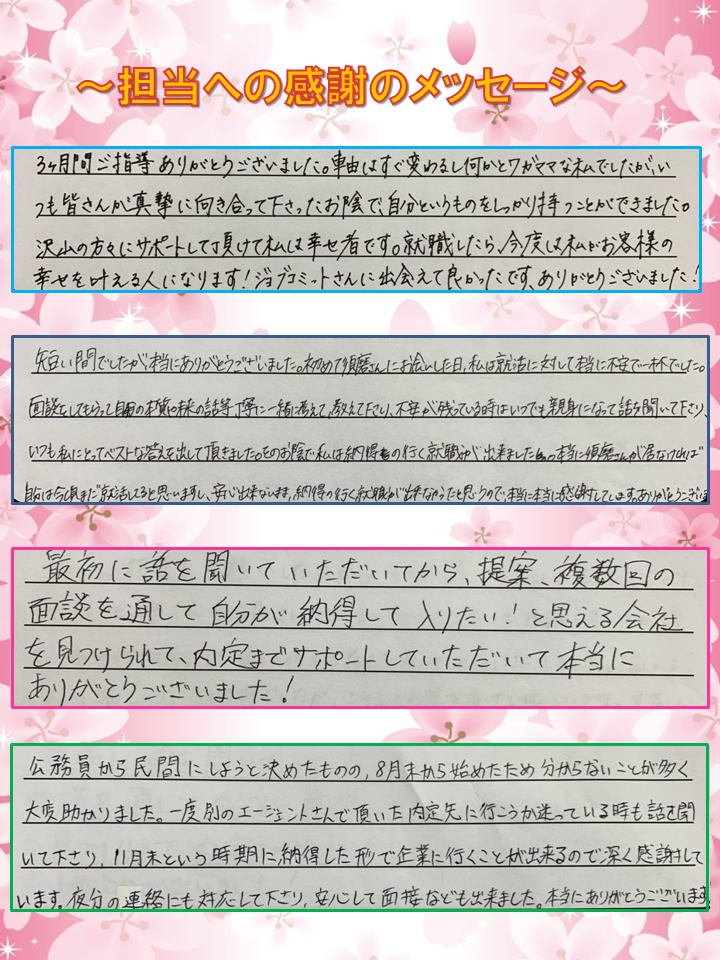 ～担当への感謝のメッセージ～
3ヶ月間ご指導ありがとうございました。軸はすぐ変わるし何かとワガママな私でしたが、い
つも皆さんが真摯に向き合って下さったお陰で、自分というものをしっかり持つことができました。
沢山の方々にサポートして頂けて私は幸せ者です。就職したら、今度は私がお客様の
幸せを叶える人になります！ジョブコミットさんに出会えて良かったです、ありがとうございました！
短い間でしたが本当にありがとうございました。初めて須磨さんにお会いした日、私は就活に対して本当に不安で一杯でした。
面談をしてもらって自己の本質や将来の話等丁寧に一緒に考えて、教えて下さり、不安が残っている時はいつでも親身になって話を聞いて下さり、
いつも私にとってベストな答えを出して頂きました。そのお陰で私は納得の行く就職が出来ました。本当に須磨さんが居なければ
自分は今頃まだ就活してると思いますし、安心出来ないまま、納得の行く就職が出来なかったと思うので、本当に本当に感謝しています。ありがとうござい
最初に話を聞いていただいてから、提案、複数回の
面談を通して自分が納得して入りたい！と思える会社
を見つけられて、内定までサポートしていただいて本当に
ありがとうございました！
公務員から民間にしようと決めたものの、8月末から始めたため分からないことが多く
大変助かりました。一度別のエージェントさんで頂いた内定先に行こうか迷っている時も話を聞
いて下さり、11月末という時期に納得した形で企業に行くことが出来るので深く感謝して
います。夜分の連絡にも対応して下さり、安心して面接なども出来ました。本当にありがとうございます。